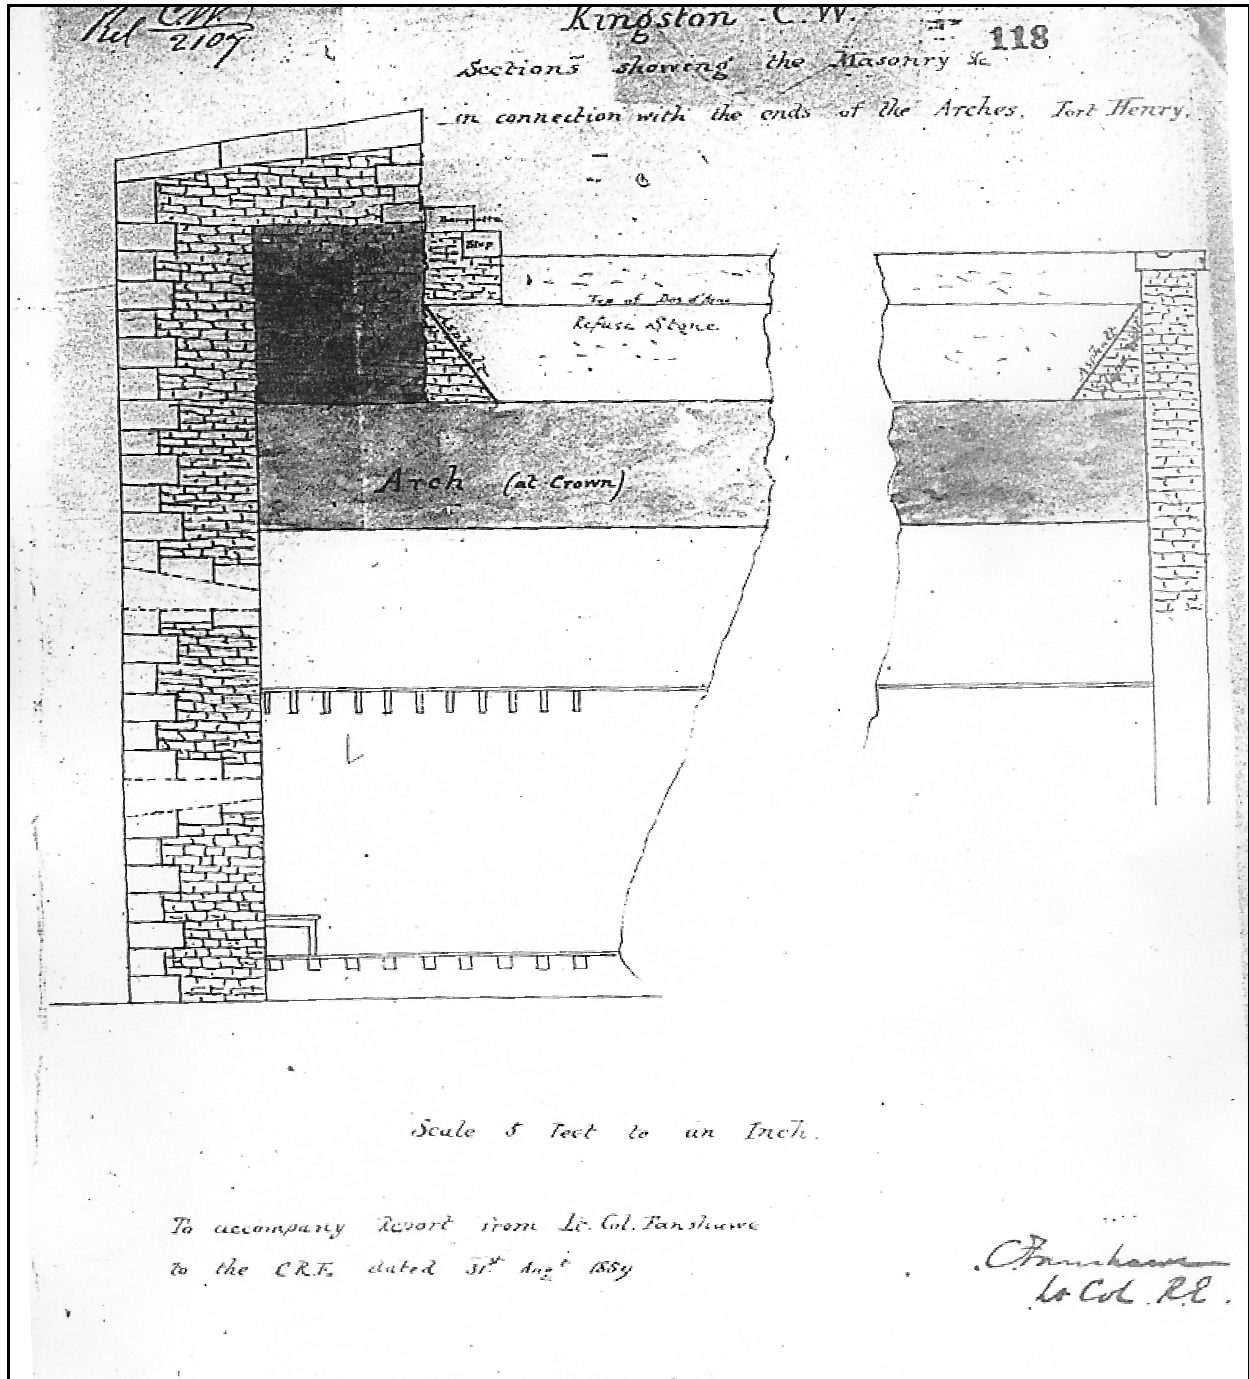 Rel C.W. / 2109
Kingston C.W.
118
Sections showing the Masonry &c
in connection with the ends of the Arches. Fort Henry.
Banquette
Step
Top of Dos d'Ane
Refuse Stone
Asphalt
Asphalt
Arch (at Crown)
Scale 5 Feet to an Inch.
To accompany Report from Lt. Col. Fanshawe
to the C.R.E. dated 31st Augt
CFanshawe
Lt Col. R.E.